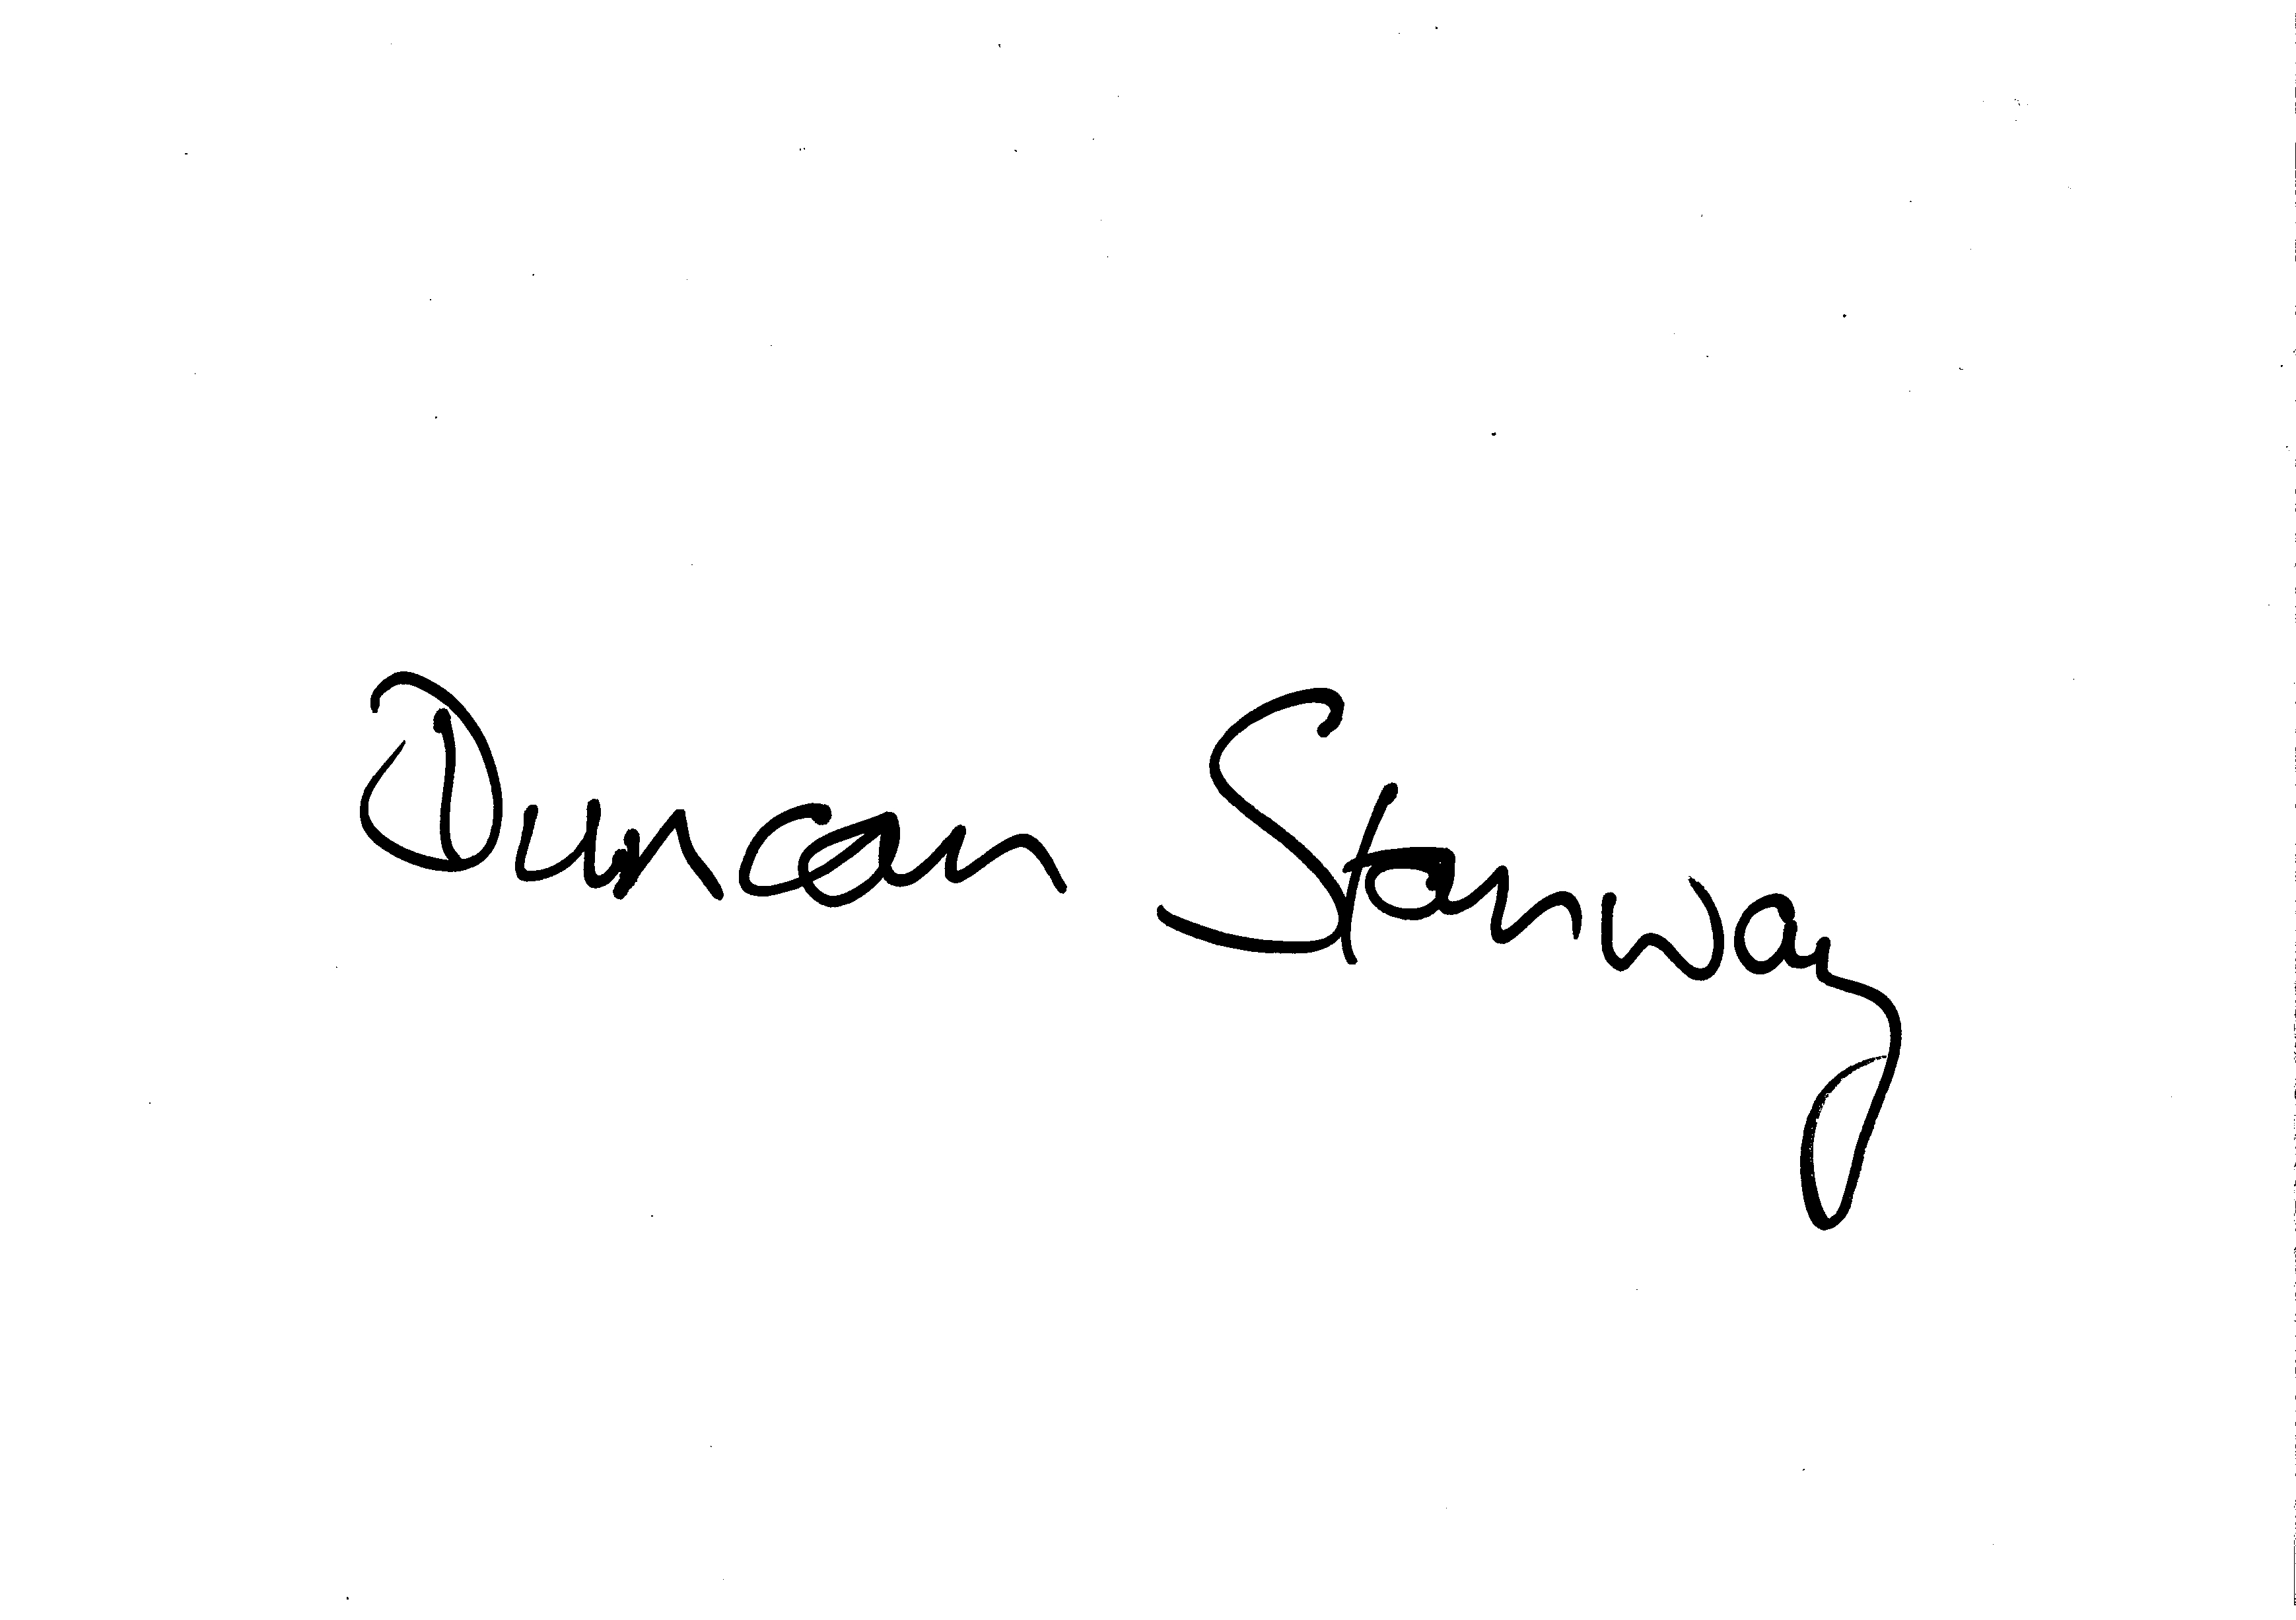 Duncan Stanway